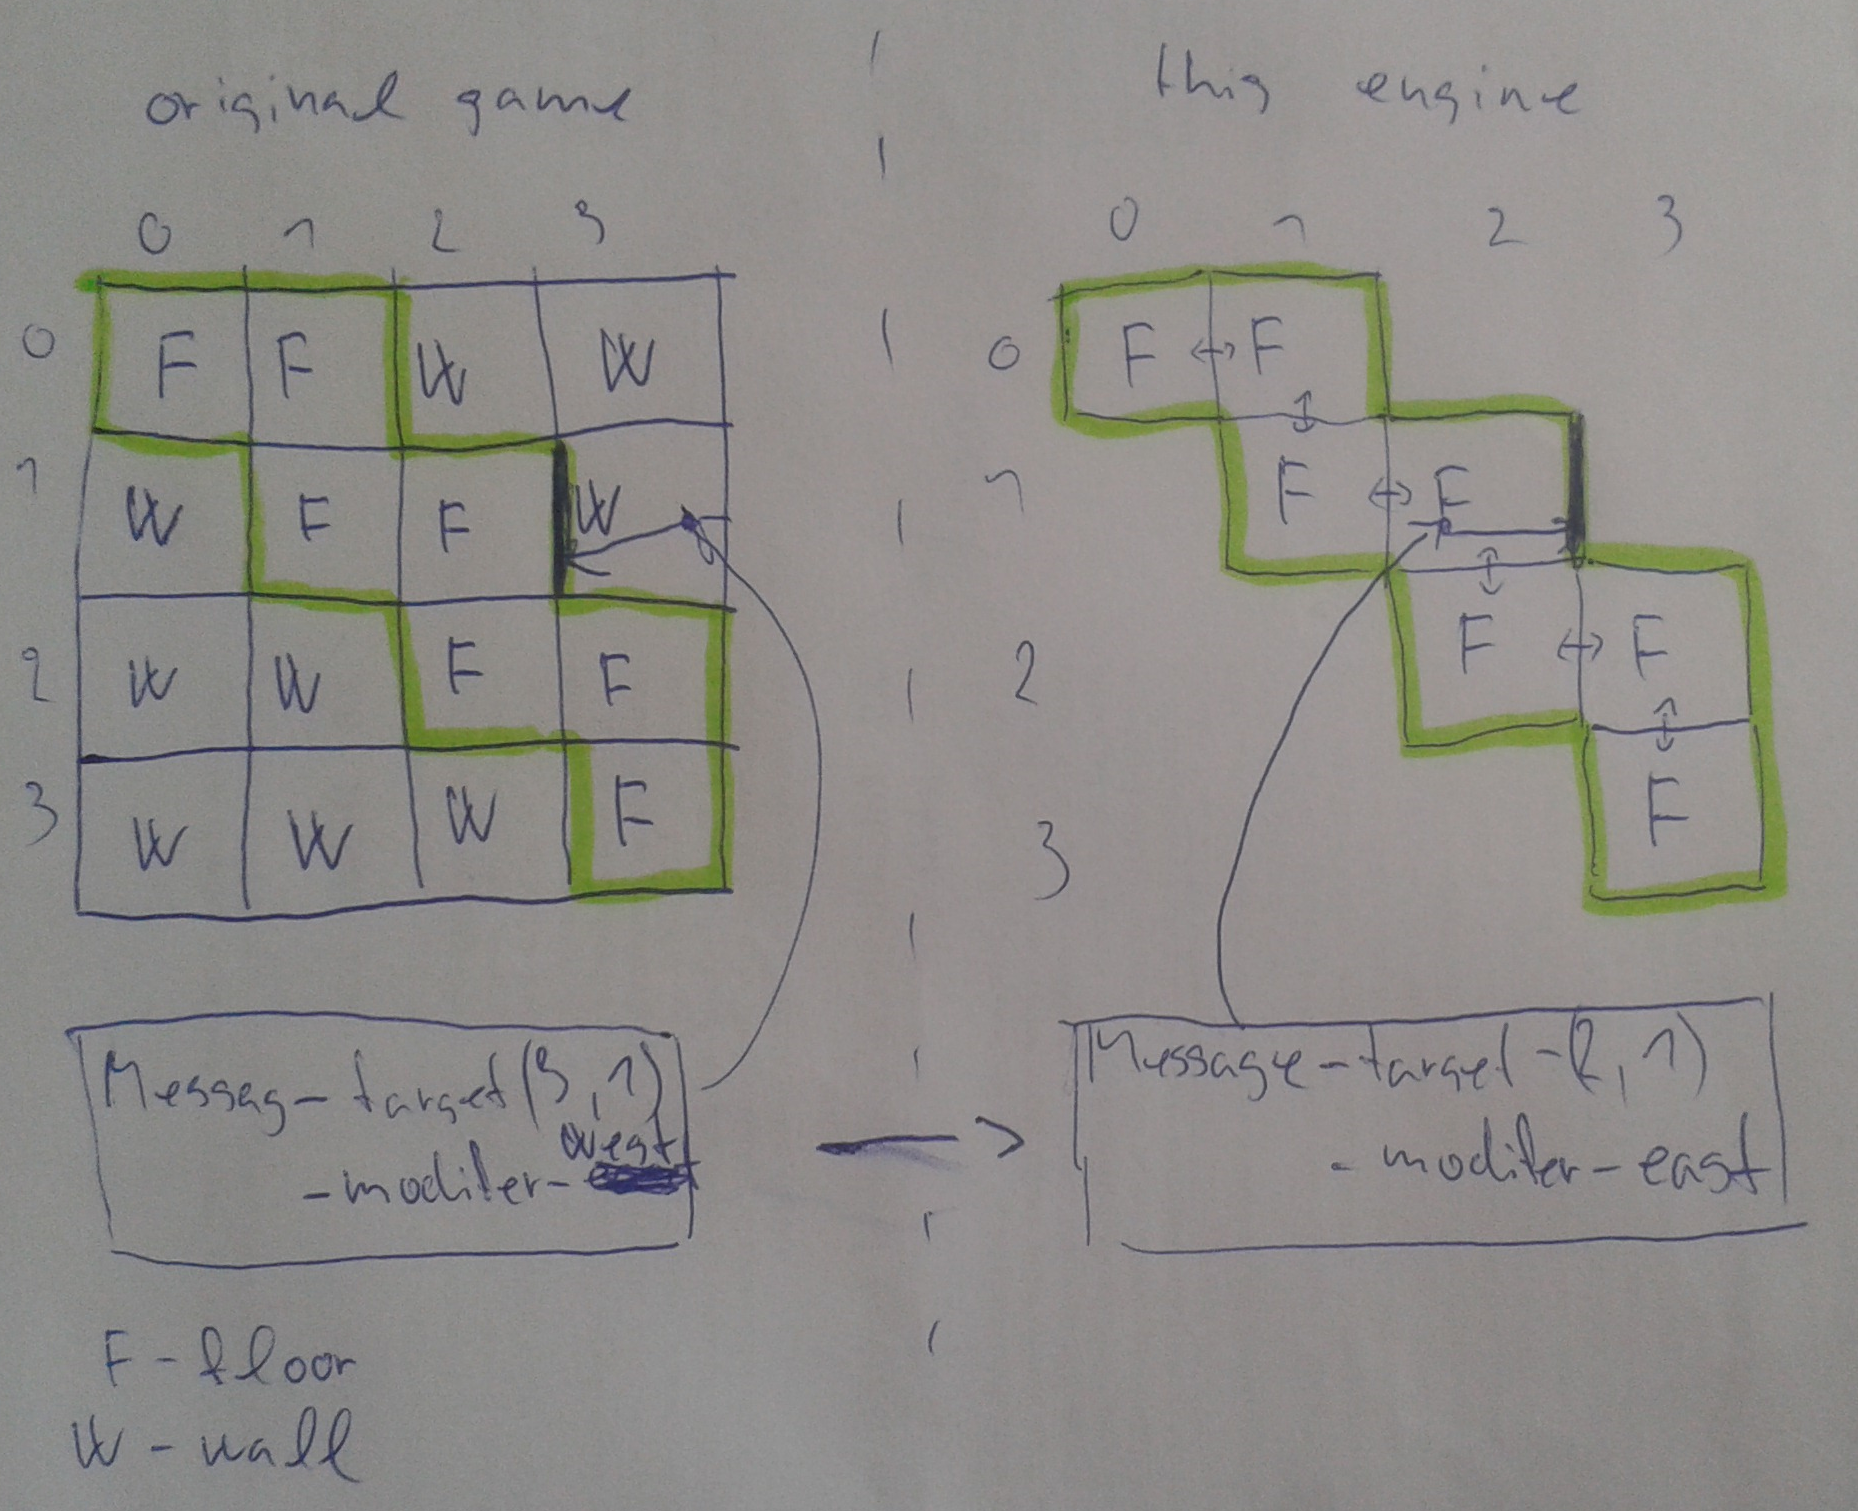 original game
0 1 2 3
0 F F W W
1 W F F W
2 W W F F
3 W W W F
Messag-target(3,1)
west
-modifer-
F-floor
W-wall
this engine
0 1 2 3
0 F ↔ F
↕
1 F ↔ F
↕
2 F ↔ F
↕
3 F
Message-target-(2,1)
-modifer-east